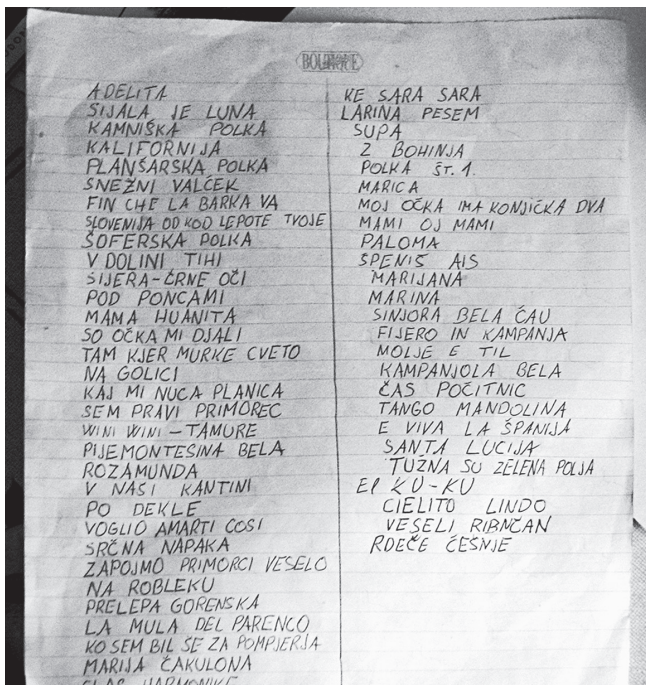 BOUTIQUE
ADELITA
SIJALA JE LUNA
KAMNIŠKA POLKA
KALIFORNIJA
PLANŠARSKA POLKA
SNEŽNI VALČEK
FIN CHE LA BARKA VA
SLOVENIJA OD KOD LEPOTE TVOJE
ŠOFERSKA POLKA
V DOLINI TIHI
SIJERA-ČRNE OČI
POD PONCAMI
MAMA HUANITA
SO OČKA MI DJALI
TAM KJER MURKE CVETO
NA GOLICI
KAJ MI NUCA PLANICA
SEM PRAVI PRIMOREC
WINI WINI - TAMURE
PIJEMONTEŠINA BELA
ROZAMUNDA
V NAŠI KANTINI
PO DEKLE
VOGLIO AMARTI COSI
SRČNA NAPAKA
ZAPOJMO PRIMORCI VESELO
NA ROBLEKU
PRELEPA GORENSKA
LA MULA DEL PARENCO
KO SEM BIL ŠE ZA POMPJERJA
MARIJA ČAKULONA
GLAS HARMONIKE
KE SARA SARA
LARINA PESEM
SUPA
Z BOHINJA
POLKA ŠT. 1.
MARICA
MOJ OČKA IMA KONJIČKA DVA
MAMI OJ MAMI
PALOMA
ŠPENIŠ AIS
MARIJANA
MARINA
SINJORA BELA ČAU
FIJERO IN KAMPANJA
MOLJE E TIL
KAMPANJOLA BELA
ČAS POČITNIC
TANGO MANDOLINA
E VIVA LA ŠPANIJA
SANTA LUCIJA
TUZNA SU ZELENA POLJA
EL KU-KU
CIELITO LINDO
VESELI RIBNČAN
RDEČE ČEŠNJE